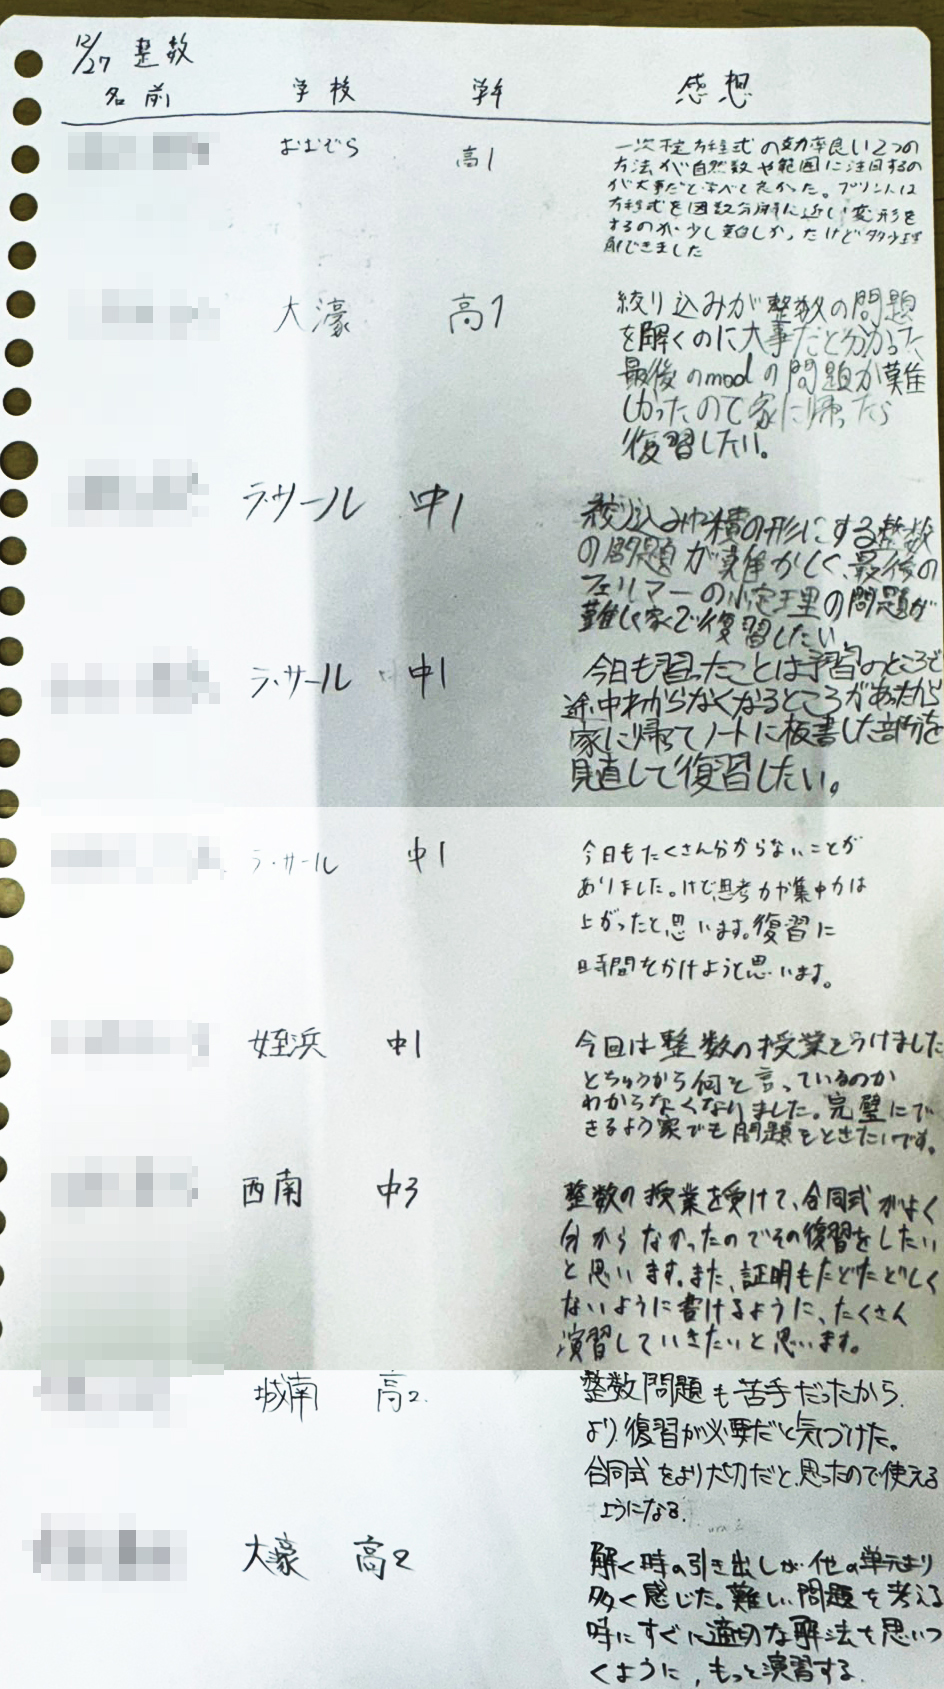 12/27 整数
名前 学校 学年 感想
おおぞら 高1
一次不定方程式の効率良い2つの
方法が自然数や範囲に注目するの
が大事だと学べて良かった。プリントは
方程式を因数分解に近い変形を
するのが少し難しかったけど 理
解できました
大濠 高1
絞り込みが整数の問題
を解くのに大事だと分かった
最後のmodの問題が難
しかったので家に帰ったら
復習したい。
ラ・サール 中1
絞り込みや積の形にする整数
の問題が難かしく、最後の
フェルマーの小定理の問題が
難しく家で復習したい。
ラ・サール 中1
今日も習ったことは予習のところで
途中わからなくなるところがあったから
家に帰ってノートに板書した部分を
見直して復習したい。
ラ・サール 中1
今日もたくさん分からないことが
ありました。けど、思考力や集中力は
上がったと思います。復習に
時間をかけようと思います。
姪浜 中1
今回は整数の授業をうけました
とちゅうから何を言っているのか
わからなくなりました。完璧にで
きるよう家でも問題をときたいです。
西南 中3
整数の授業を受けて、合同式がよく
分からなかったのでその復習をしたい
と思います。また、証明もたどたどしく
ないように書けるように、たくさん
演習していきたいと思います。
城南 高2.
整数問題も苦手だったから
より復習が必要だと気づけた。
合同式をより大切だと思ったので使える
ようになる.
大濠 高2
解く時の引き出しが他の単元より
多く感じた。難しい問題を考える
時にすぐに適切な解法を思いつ
くように,もっと演習する.